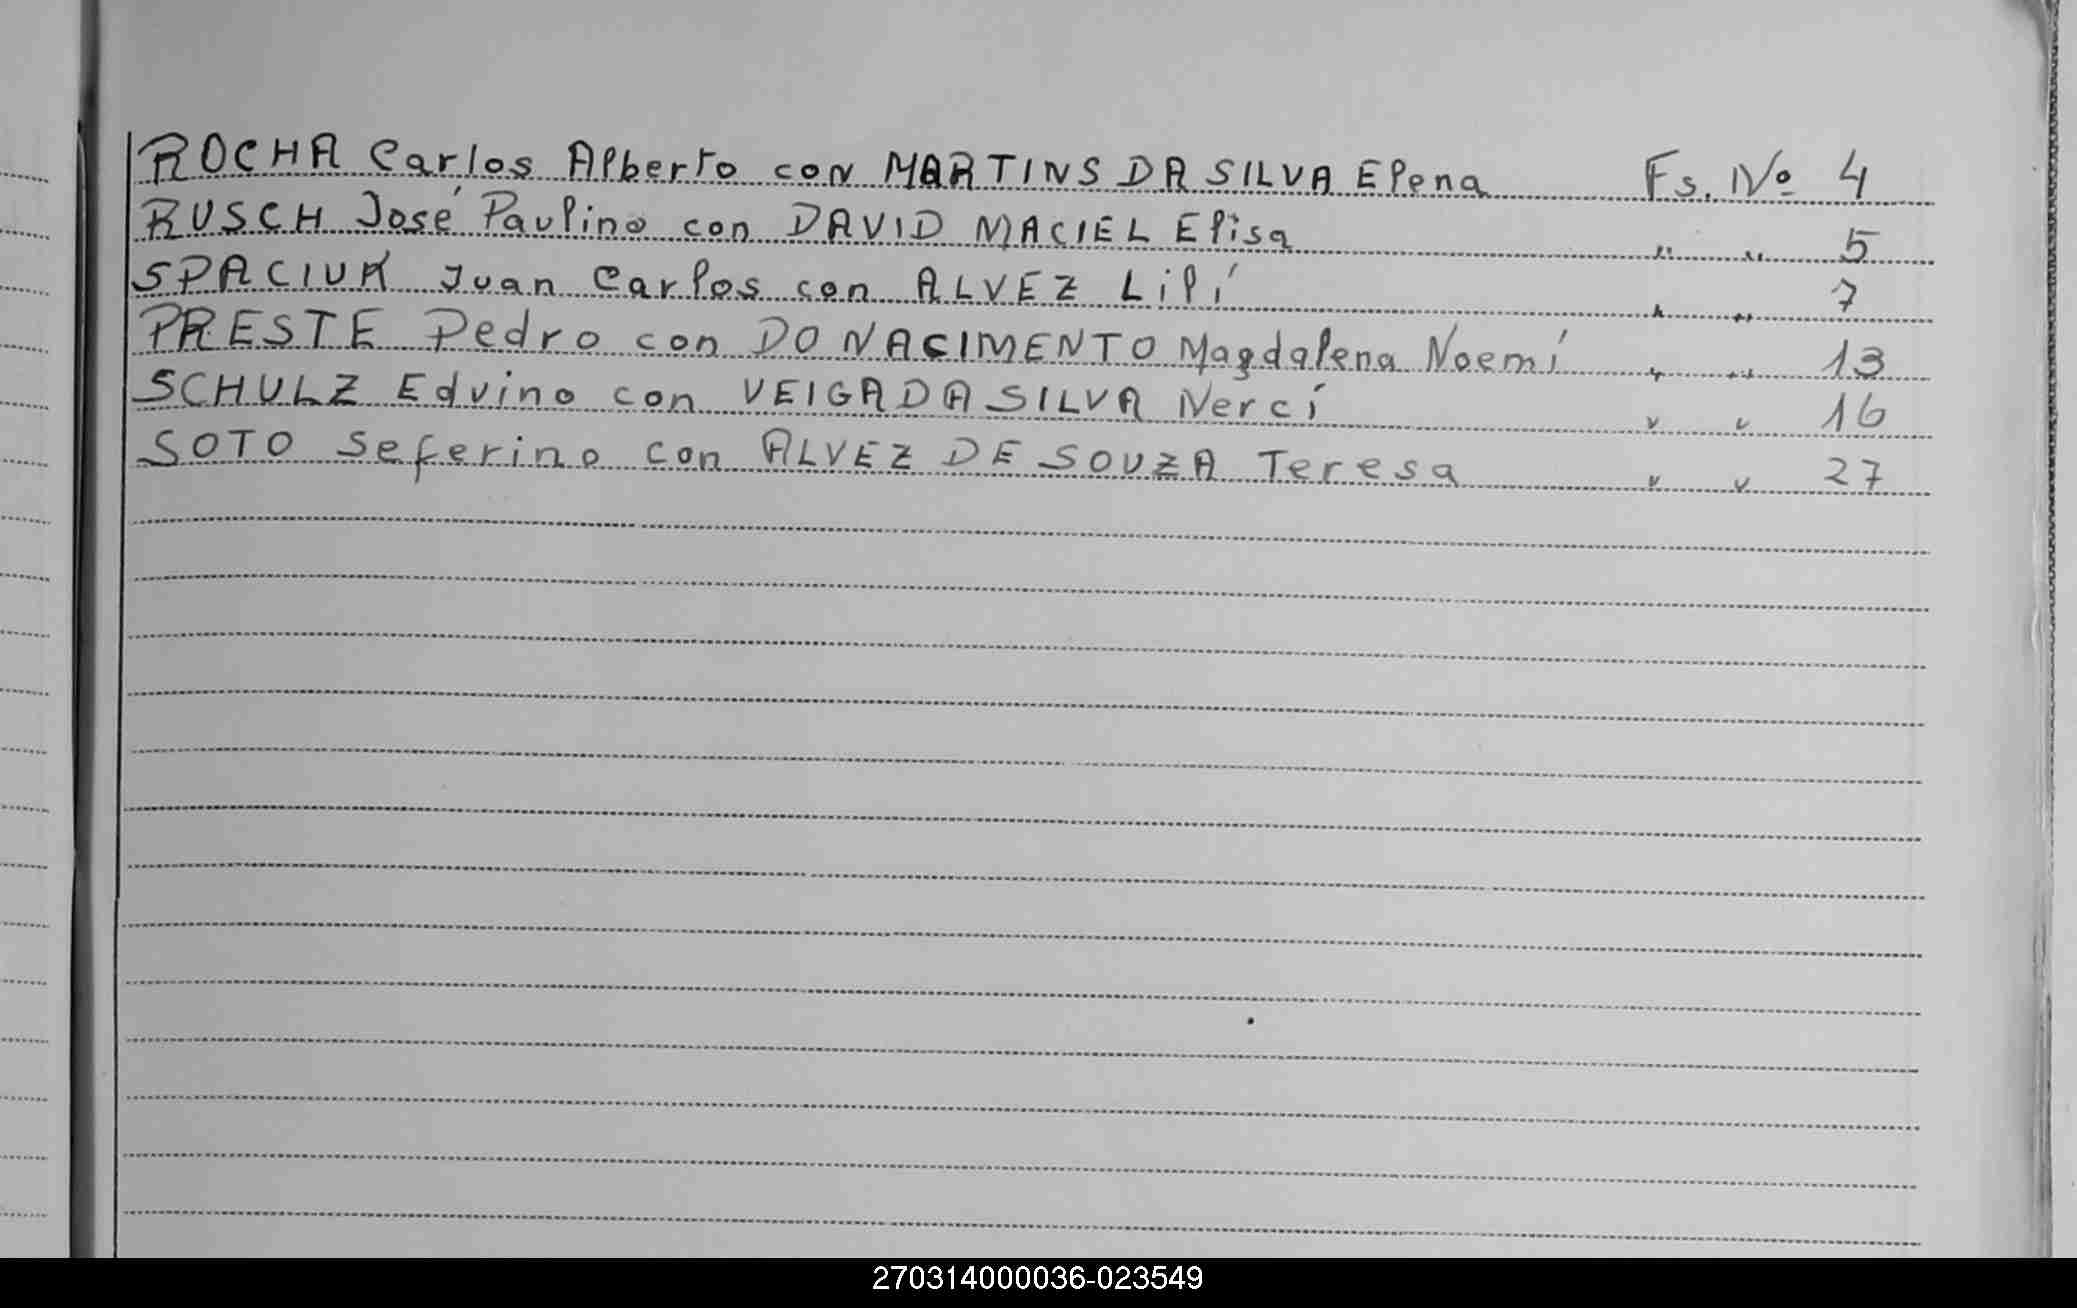 ROCHA Carlos Alberto con MARTINS DA SILVA Elena Fs. Nº 4
RUSCH José Paulino con DAVID MACIEL Elisa " " 5
SPACIUK Juan Carlos con ALVEZ Lilí " " 7
PRESTE Pedro con DO NACIMENTO Magdalena Noemí " " 13
SCHULZ Edvino con VEIGA DA SILVA Nercí " " 16
SOTO Seferino con ALVEZ DE SOUZA Teresa " " 27
270314000036-023549